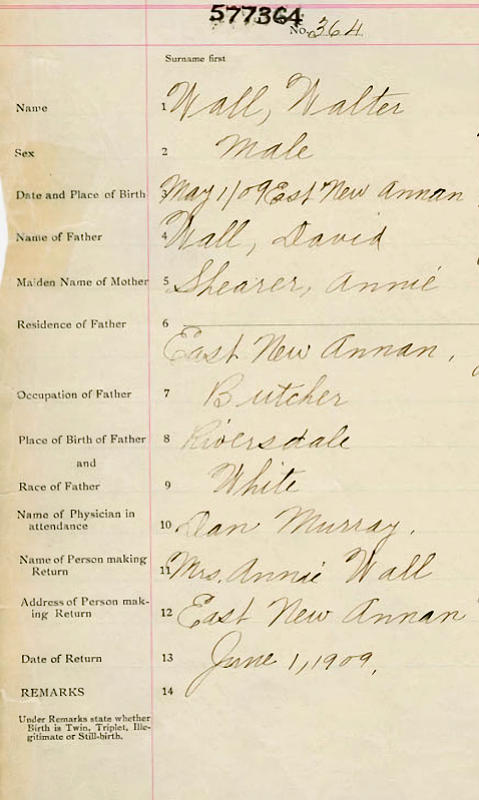 577364
No. 364
Surname first
Name 1 Wall, Walter
Sex 2 Male
Date and Place of Birth May 1/09 East New Annan
Name of Father 4 Wall, David
Maiden Name of Mother 5 Shearer, Annie
Residence of Father 6
East New Annan,
Occupation of Father 7 Butcher
Place of Birth of Father 8 Riversdale
and
Race of Father 9 White
Name of Physician in
attendance 10 Dan Murray.
Name of Person making
Return 11 Mrs. Annie Wall
Address of Person mak-
ing Return 12 East New Annan
Date of Return 13 June 1, 1909,
REMARKS 14
Under Remarks state whether
Birth is Twin, Triplet, Ille-
gitimate or Still-birth.